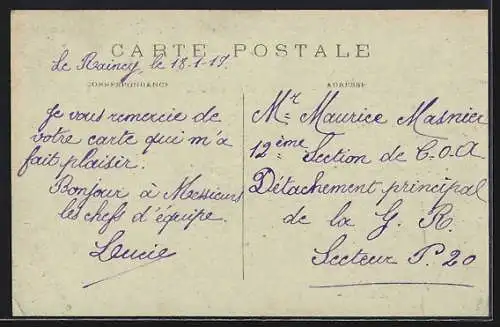 CARTE POSTALE
Le Raincy, le 18-1-17.
CORRESPONDANCE
Je vous remercie de
votre carte qui m'a
fait plaisir.
Bonjour à Messieurs
les chefs d'équipe.
Lucie
ADRESSE
Mr Maurice Masnier
12ème Section de C-O-A
Détachement principal
de la G. R.
Secteur P. 20